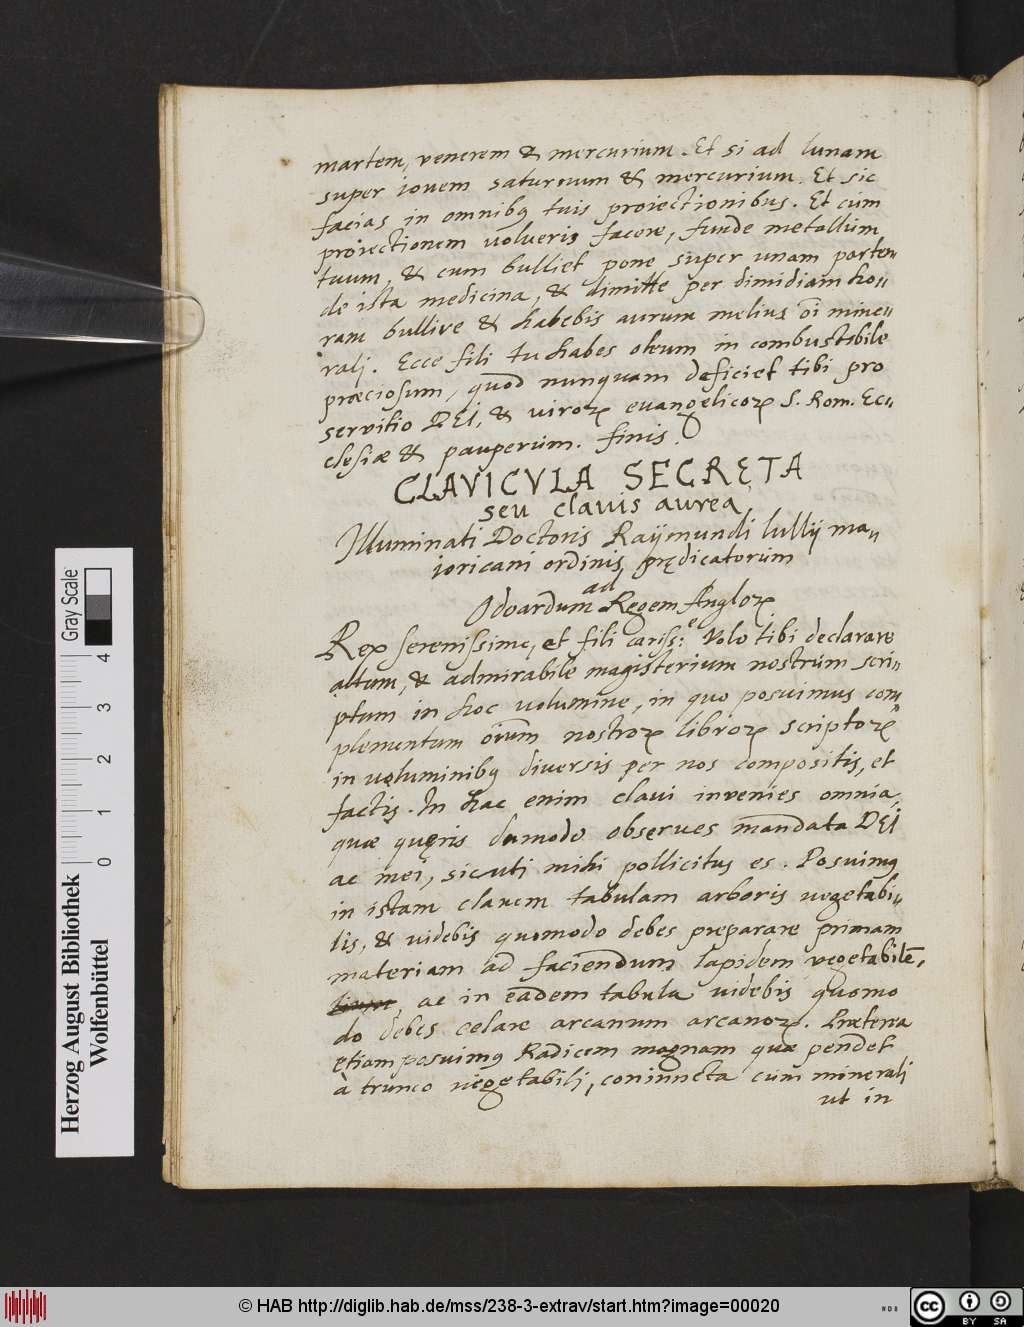 martem, venerem & mercurium. Et si ad lunam
super iovem saturnum & mercurium. Et sic
facias in omnibꝗ tuis proiectionibus. Et cùm
proiectionem volueris facere, funde metallum
tuum, & cum bulliet pone super unam partem
de ista medicina, & dimitte per dimidiam ho„
ram bullire & habebis aurum melius oĩ mine„
rali. Ecce fili tu habes oleum in combustibile
præciosum, quod nunquam deficiet tibi pro
servitio DEI, & viroꝝ evangelicoꝝ S. Rom. Ec„
clesiæ & pauperùm. finis.
CLAVICVLA SECRĘTA
seu clavis aurea
Illuminati Doctoris Raÿmundi lullÿ ma„
ioricani ordinis prędicatorùm
ad
Odoardum Regem Angloꝝ
Rex serenissime, et fili cariss:e Volo tibi declarare
altum, & admirabile magisterium nostrùm scri„
ptum in hoc volumine, in quo posuimus com„
plementum oĩum nostroꝝ libroꝝ scriptoꝝ
in voluminibꝗ diversis per nos compositis, et
factis. In hac enim clavi invenies omnia,
quæ quęris dumodo observes mandata DEI
ac mei, sicuti mihi pollicitus es. Posuimꝗ
in istam clavem tabulam arboris vegetabi„
lis, & videbis quomodo debes preparare primam
materiam ad faciendum lapidem vegetabilẽ,
ac in eadem tabula videbis quomo
do debes celare arcanum arcanoꝝ. Præterea
etiam posuimꝗ Radicem magnam quæ pendet
à trunco vegetabili, coniuncta cum minerali
ut in
Herzog August Bibliothek
Wolfenbüttel
0 1 2 3 4
Gray Scale
© HAB http://diglib.hab.de/mss/238-3-extrav/start.htm?image=00020
NDB
cc BY SA